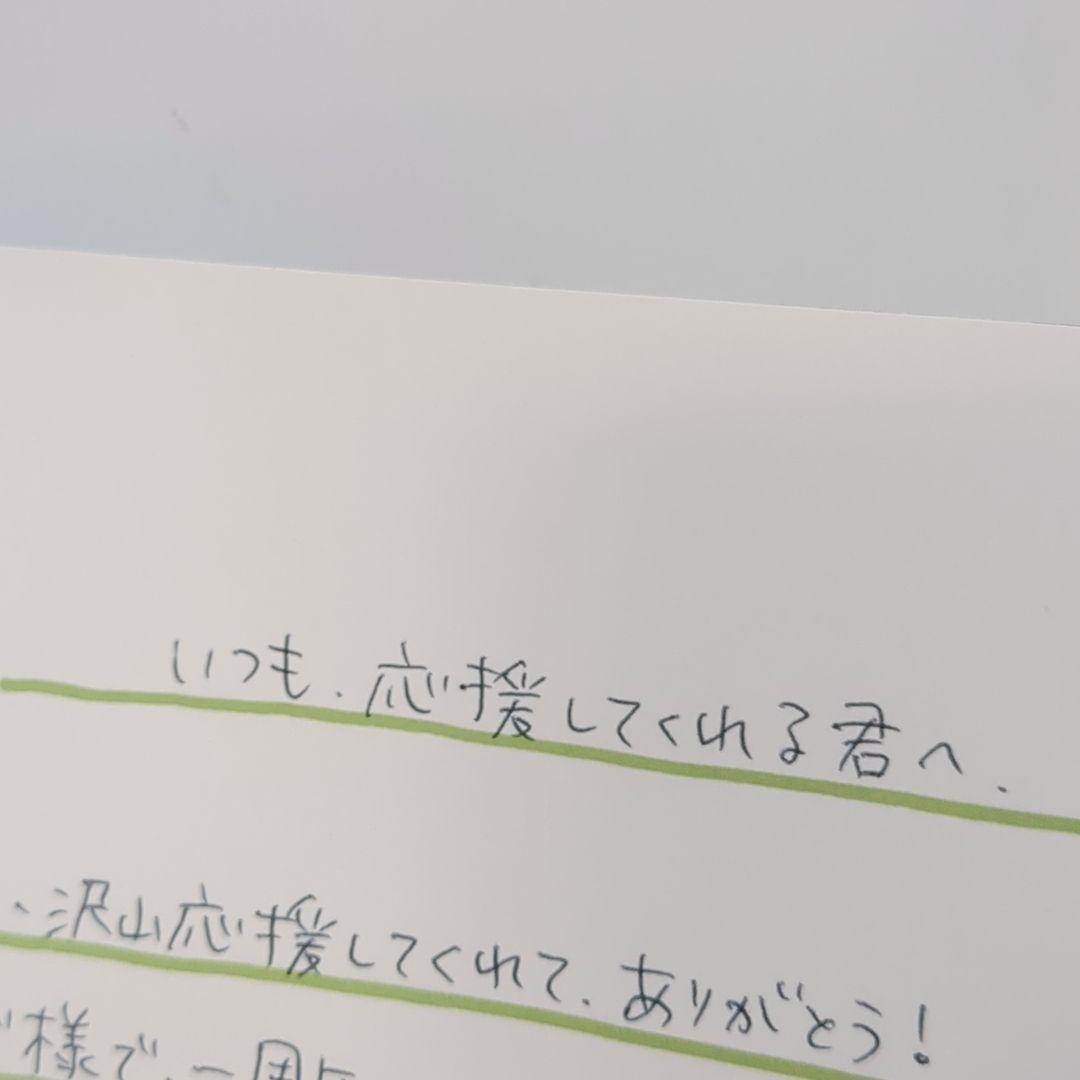 いつも、応援してくれる君へ、
、沢山応援してくれて、ありがとう!
様で、一周